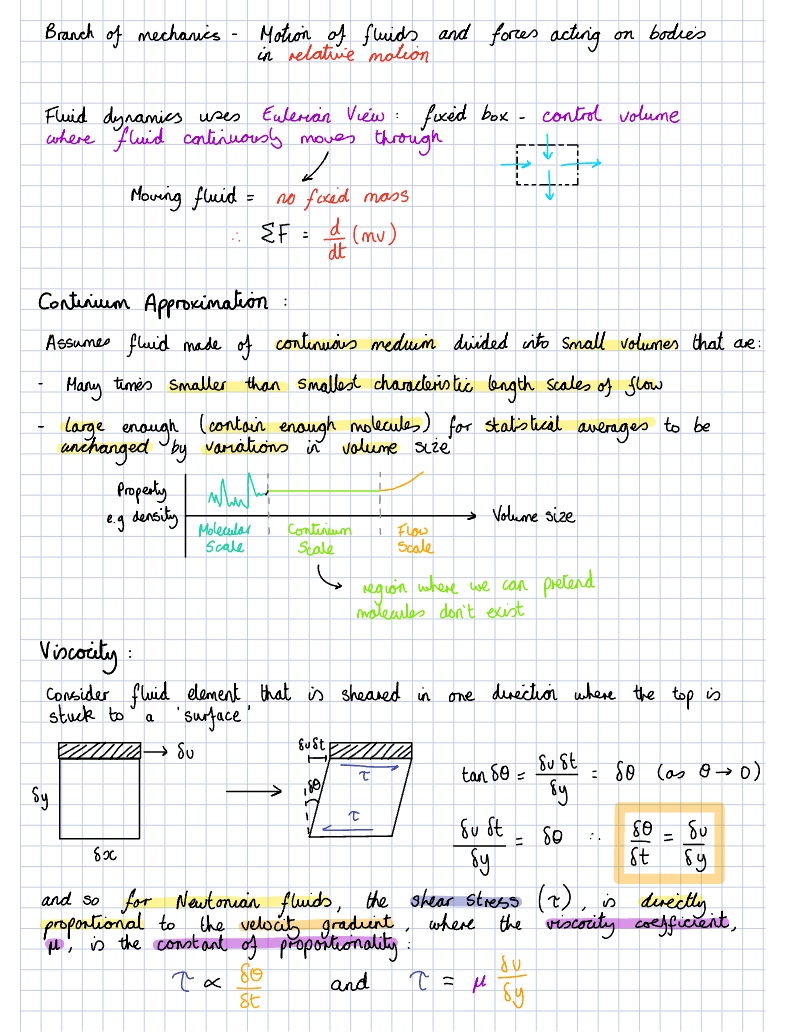 Branch of mechanics - Motion of fluids and forces acting on bodies
in relative motion
Fluid dynamics uses Eulerian View : fixed box - control volume
where fluid continuously moves through
Moving fluid = no fixed mass
∴ ΣF = d/dt (mv)
Continium Approximation :
Assumes fluid made of continuous medium divided into small volumes that are:
- Many times smaller than smallest characteristic length scales of flow
- large enough (contain enough molecules) for statistical averages to be
unchanged by variations in volume size
Property
e.g density
Volume size
Molecular Scale
Continium Scale
Flow Scale
region where we can pretend
molecules don't exist
Viscocity :
Consider fluid element that is sheared in one direction where the top is
stuck to a 'surface'
δu
δy
δx
δuδt
δθ
τ
τ
tan δθ = δu δt / δy = δθ (as θ → 0)
δu δt / δy = δθ ∴ δθ/δt = δu/δy
and so for Newtonian fluids, the shear stress (τ), is directly
proportional to the velocity gradient, where the viscocity coefficient,
μ, is the constant of proportionality :
τ ∝ δθ/δt and τ = μ δu/δy